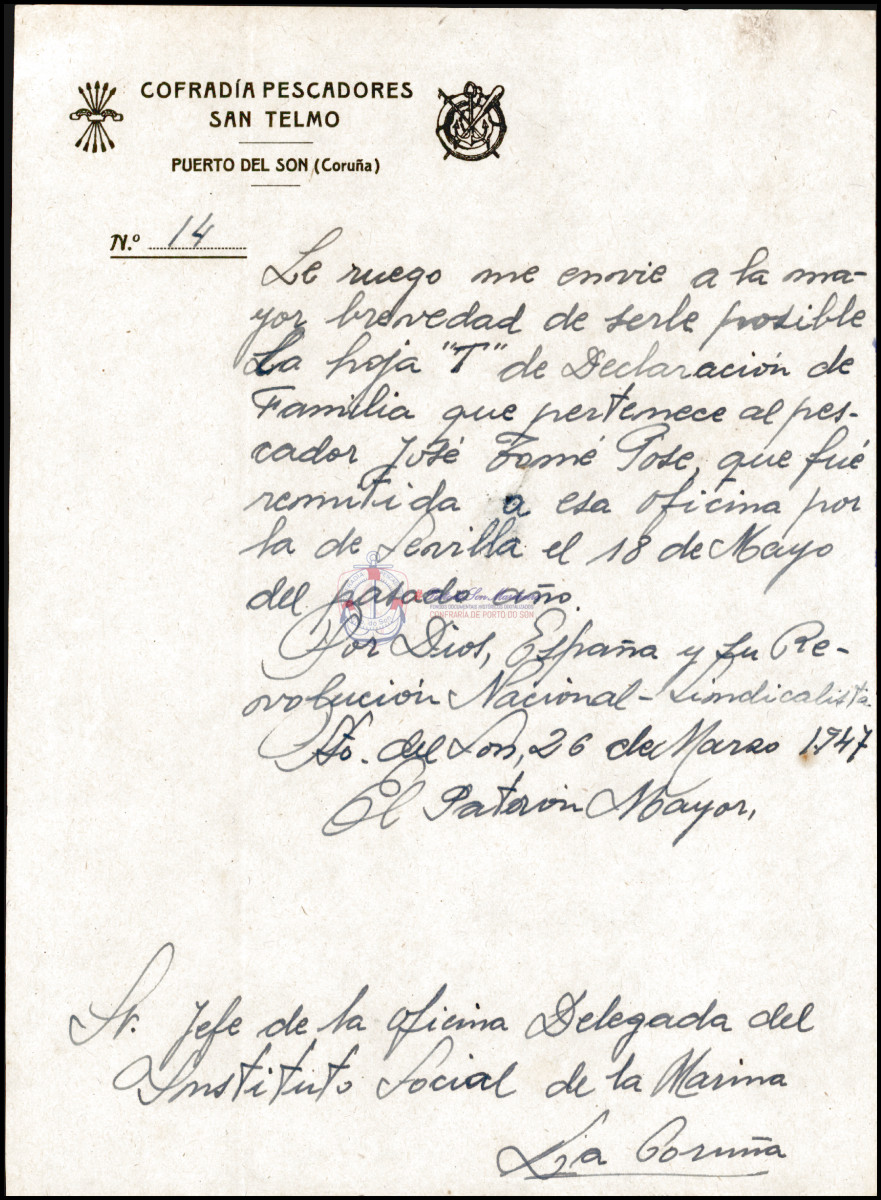 COFRADÍA PESCADORES
SAN TELMO
PUERTO DEL SON (Coruña)
N.º 14
Le ruego me envie a la ma-
yor brevedad de serle posible
La hoja "T" de Declaración de
Familia que pertenece al pes-
cador José Tomé Pose, que fué
remitida a esa oficina por
la de Sevilla el 18 de Mayo
del pasado año.
CONFRARÍA DE PORTO DO SON
Por Dios, España y su Re-
volución Nacional-Sindicalista
Pto. del Son, 26 de Marzo 1.947
El Patrón Mayor,
Sr. Jefe de la Oficina Delegada del
Instituto Social de la Marina
La Coruña